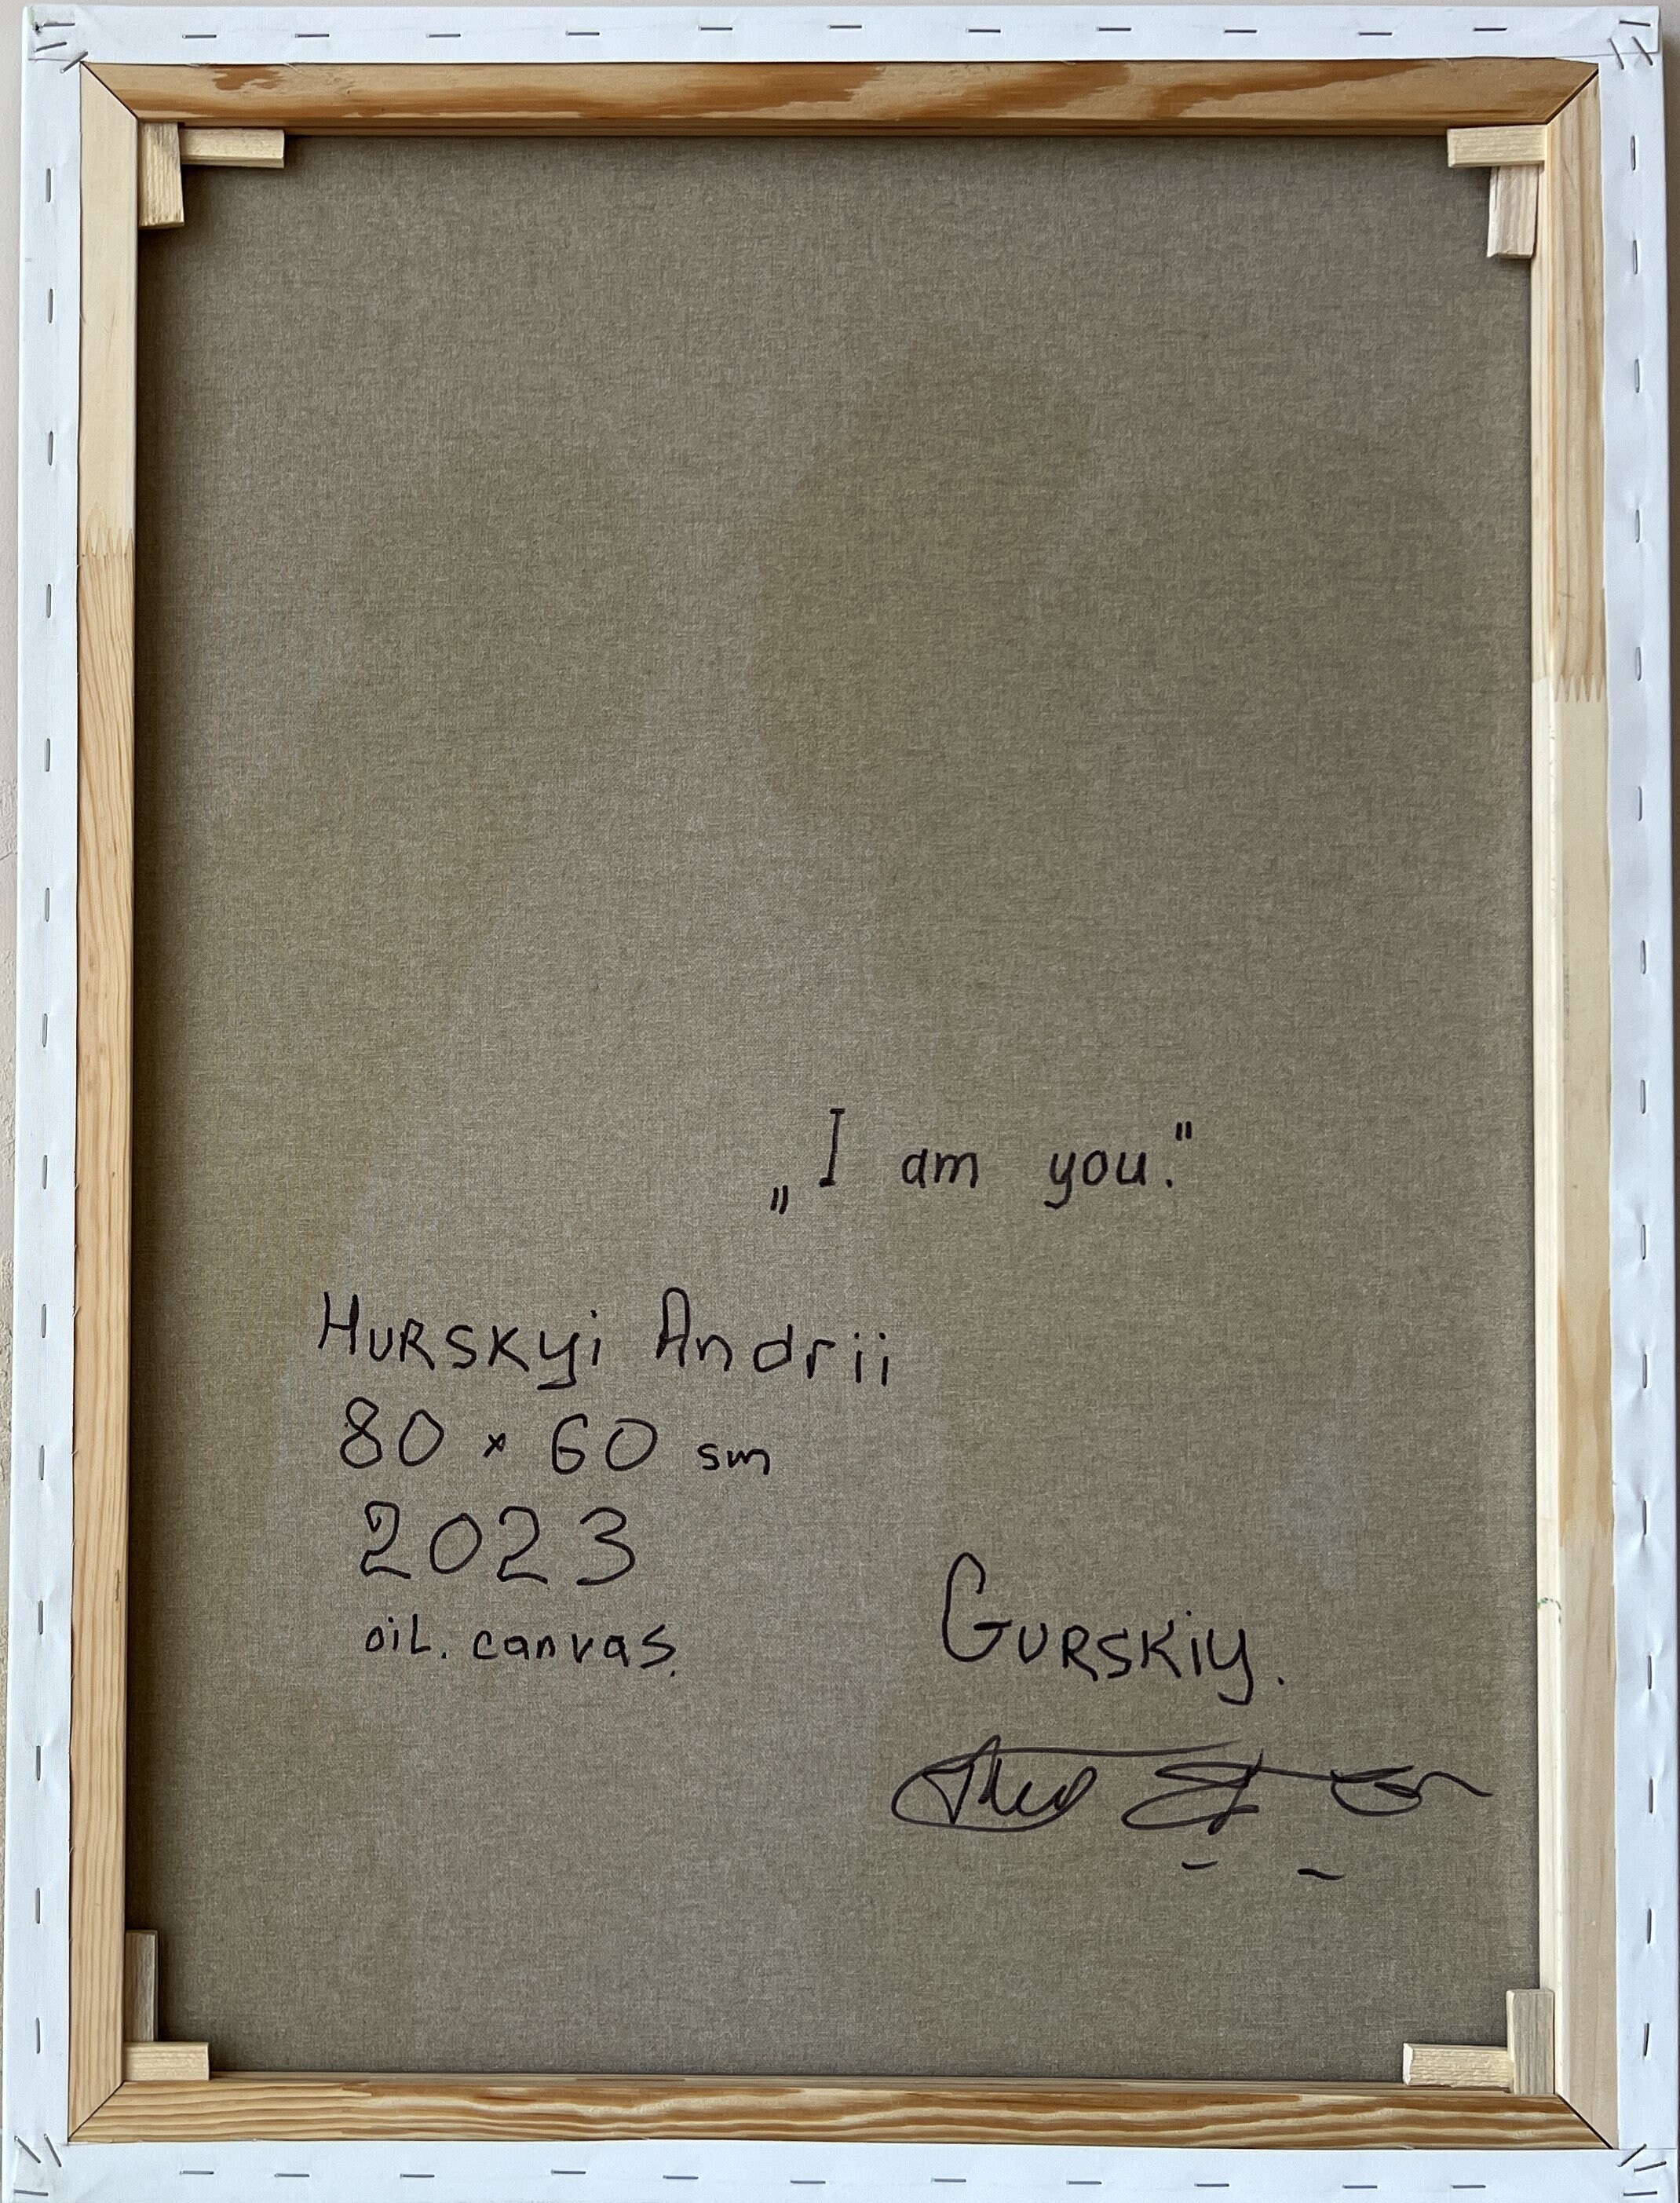 „I am you."
Hurskyi Andrii
80 × 60 sm
2023
oil. canvas.
Gurskiy.